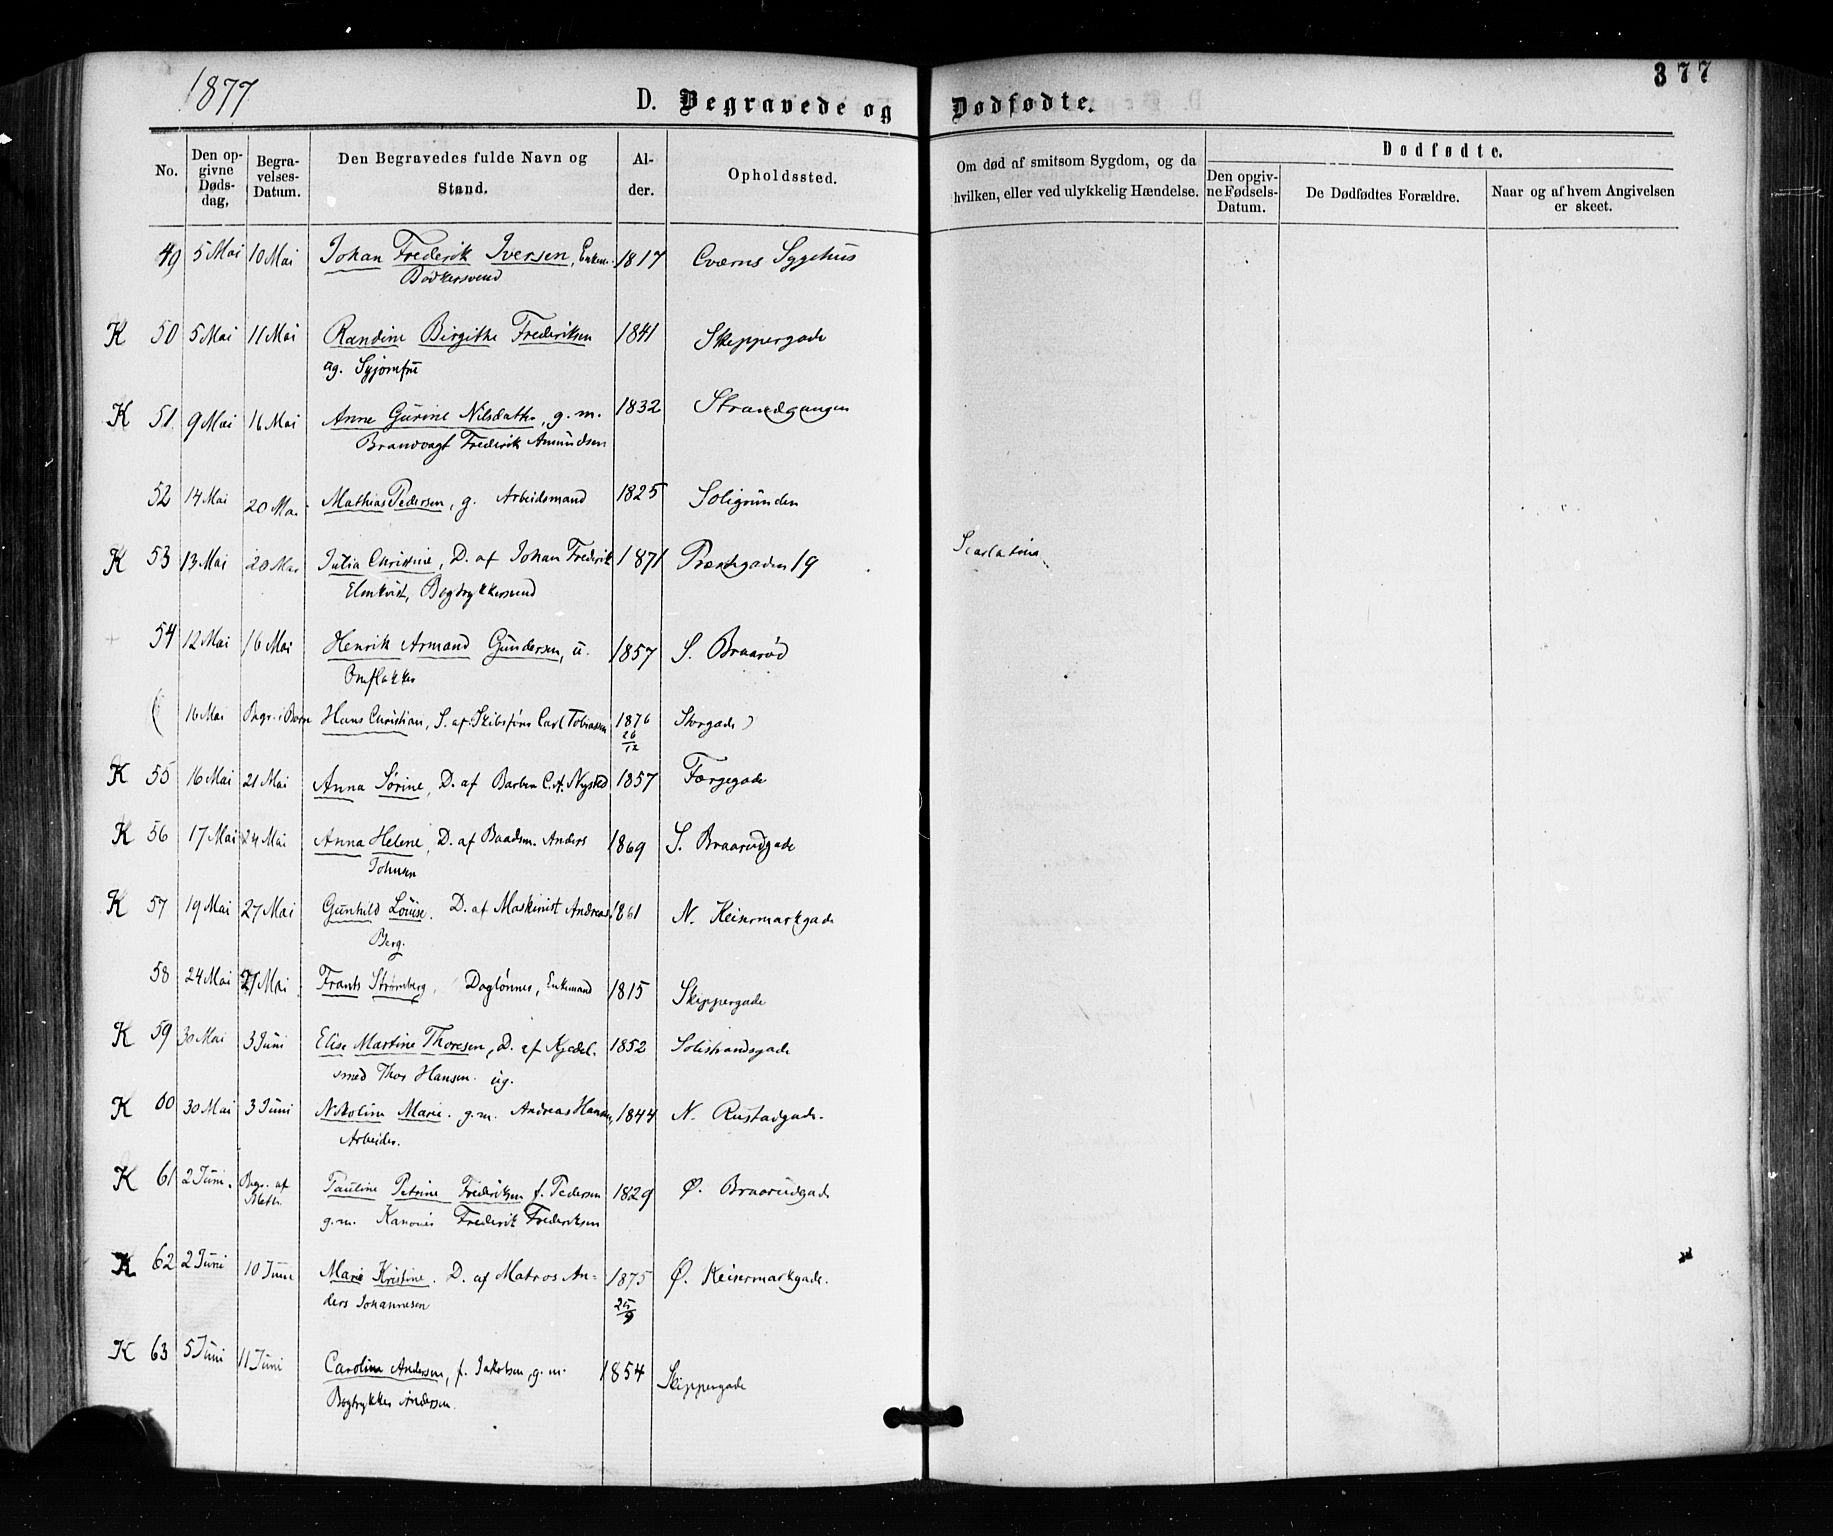 1877
377
D. Begravede og Dødfødte.
No.
Den opgivne Dødsdag,
Begravelses-Datum.
Den Begravedes fulde Navn og Stand.
Alder.
Opholdssted.
Om død af smitsom Sygdom, og da hvilken, eller ved ulykkelig Hændelse.
Dødfødte.
Den opgivne Fødsels-Datum.
De Dødfødtes Forældre.
Naar og af hvem Angivelsen er skeet.
49 5 Mai 10 Mai Johan Frederik Iversen, Enkem. 1817 Cværns Sygehus
Bødkersvend
K 50 5 Mai 11 Mai Randine Birgithe Frederiksen 1841 Skippergade
ug. Syjomfru
K 51. 9 Mai 16 Mai Anne Gurine Nilsdatter, g. m. 1832 Strandgangen
Brandvagt Frederik Amundsen
52 14 Mai 20 Mai Mathias Pedersen, g. Arbeidsmand 1825 Soligrunden
K 53 13 Mai 20 Mai Julia Christine, D. af Johan Frederik 1871 Præstegaden 19 Scarlatina
Elmkvist, Bogtrykkersvend
54 12 Mai 16 Mai Henrik Armand Gundersen, u. 1857 S. Braarød
( 16 Mai Begr. i Hans Christian, S. af Skibsføre Carl Tobiassen 1876 Storgade )
26/12
K 55 16 Mai 21 Mai Anna Sørine, D. af Barber C. A. Nysted 1857 Færgegade
K 56 17 Mai 24 Mai Anna Helene, D. af Baadsm. Anders 1869 S. Braarudgade
Johnsen
K 57 19 Mai 27 Mai Gunhild Louise. D. af Maskinist Andreas 1861 N. Keisermarkgade
Berg.
58 24 Mai 27 Mai Frants Strømberg, Dagløнner, Enkemand 1815 Skippergade
K 59 30 Mai 3 Juni Elise Martine Thoresen, D. af Kjedel- 1852 Solistrandsgade
smed Thor Hansen. ug.
K 60 30 Mai 3 Juni Nikoline Marie. g. m. Andreas Hansen, 1844 N. Rustadgade.
Arbeider.
K 61 2 Juni. Begr. af Meth. Pauline Petrine Frederiksen f. Pedersen 1829 Ø. Braarudgade
g. m. Kanoner Frederik Frederiksen
K 62 2 Juni 10 Juni Marie Kristine. D. af Matros An- 1875 Ø. Keisermarkgade.
ders Johannesen 25/9
K 63 5 Juni 11 Juni Carolina Andersen, f. Jakobsen, g. m. 1854 Skippergade
Bogtrykker Andersen.